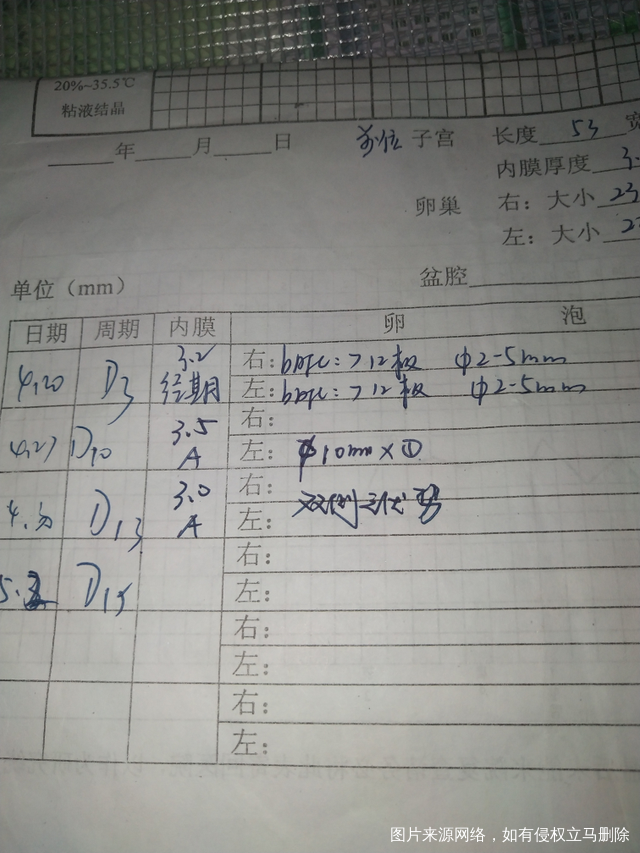 20%~35.5℃
粘液结晶
年 月 日
前位 子宫 长度 53 宽
内膜厚度 3.
卵巢 右：大小 23
左：大小 2
单位（mm） 盆腔
日期 周期 内膜 卵 泡
4.20 D3 3.2 经期 右： >12枚 φ2-5mm
左： >12枚 φ2-5mm
4.27 D10 3.5 A 右：
左：φ10mm×①
4.30 D13 3.0 A 右：
左：
双侧无优势
D15 右：
左：
右：
左：
右：
左：
图片来源网络，如有侵权立马删除